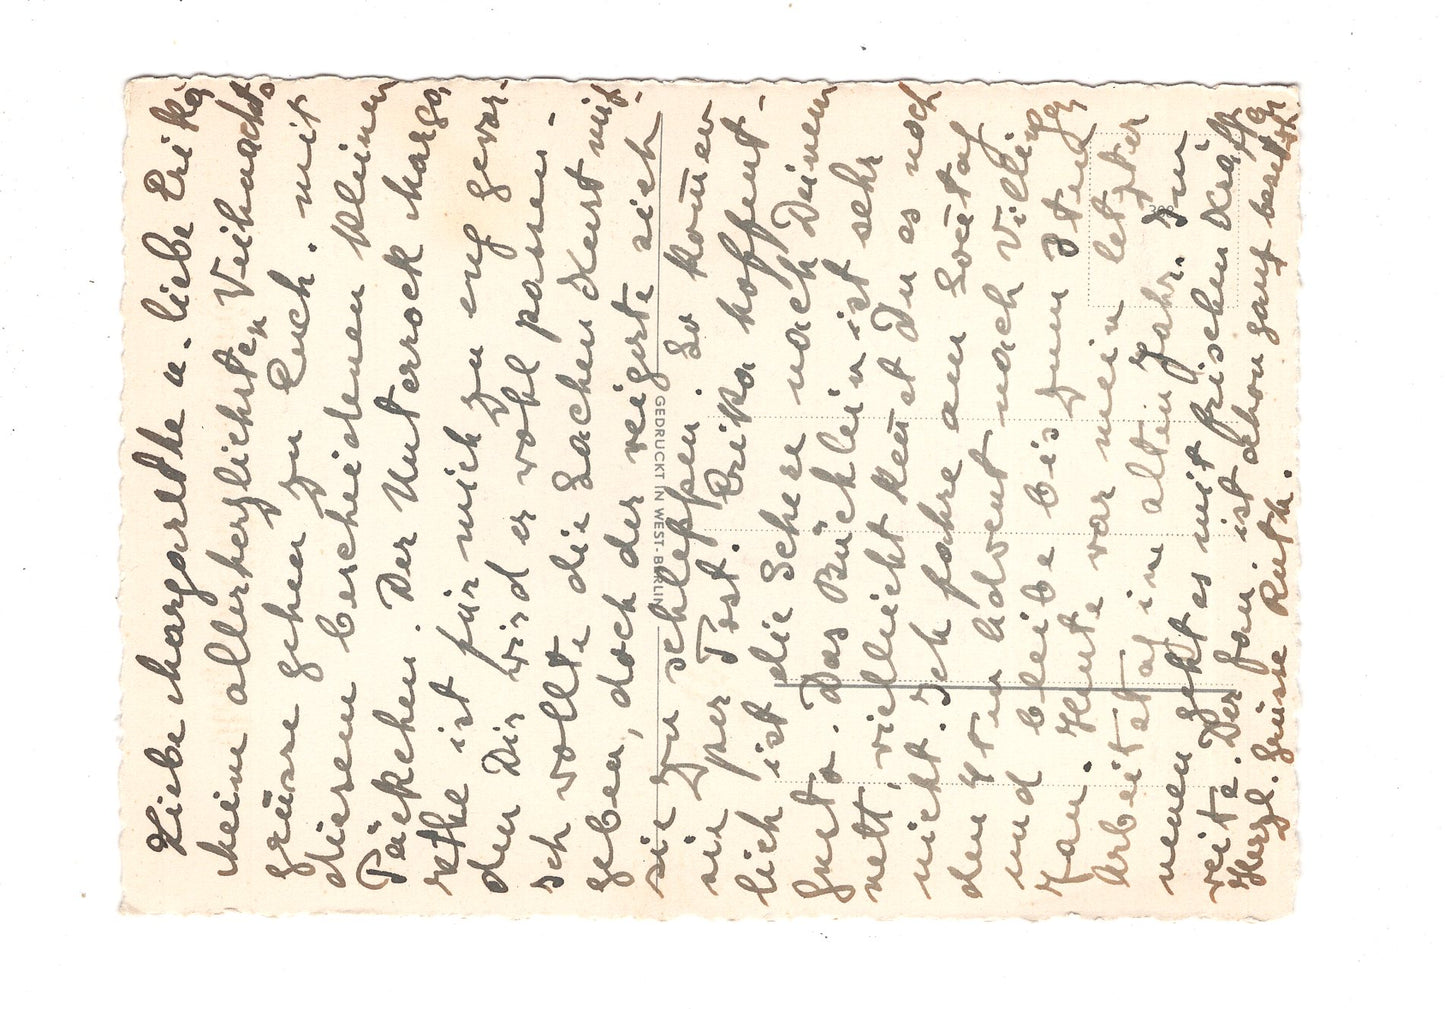 Liebe Margarethe u. liebe Erika
meine allerherzlichsten Weihnachts
grüsse gehen zu Euch. mit
diesem bescheidenen kleinen
Päckchen. Der Unterrock Marga
rethe ist für mich zu eng gewor-
den Dir wird er wohl passen.
Ich wollte die Sachen Kurt mit-
geben, doch der weigerte sich
sie zu schleppen. So kom̄en
sie per Post. Erika hoffent-
lich ist die Schere nach Deinem
Gusto. Das Büchlein ist sehr
nett, vielleicht ken̄st Du es noch
nicht. Ich fahre am Son̄tag
den 4ten Advent nach
und bleibe bis zum 3ten
Jan. Heute war mein letzter
Arbeitstag im alten Jahr. Im
neuen geht es mit frischen Kräften
weiter. Der ist schon ganz
Herzl. Grüsse Ruth.
GEDRUCKT IN WEST-BERLIN
399